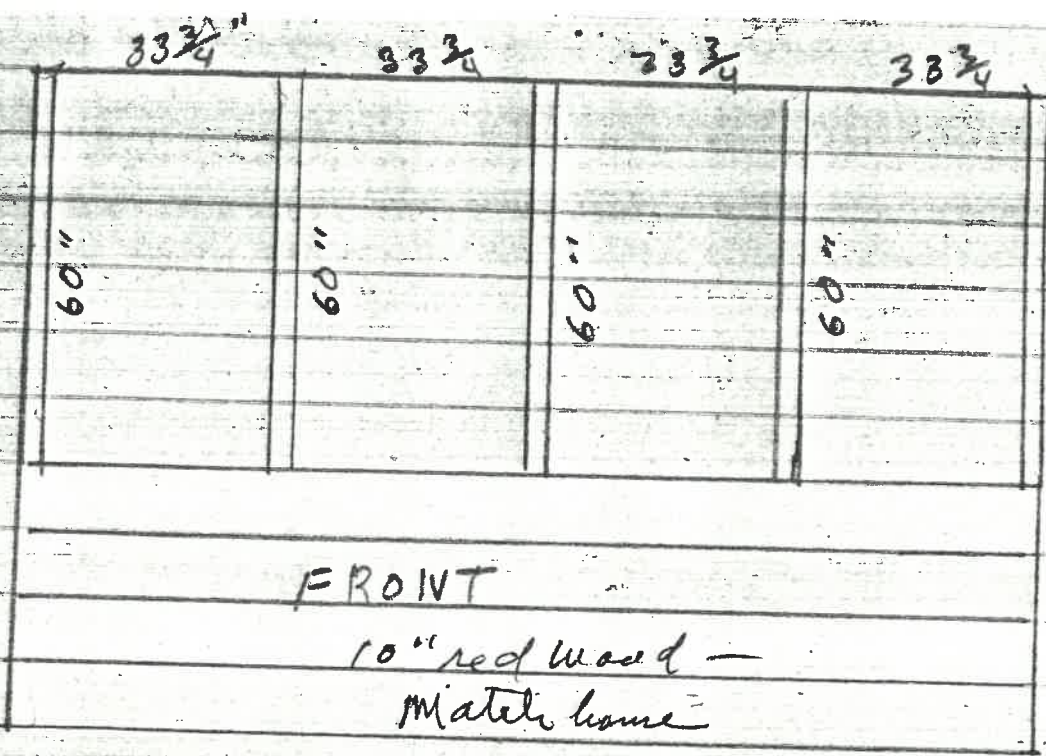 33 3/4" 33 3/4 33 3/4 33 3/4
60" 60" 60" 60"
FRONT
10" red wood —
Match house